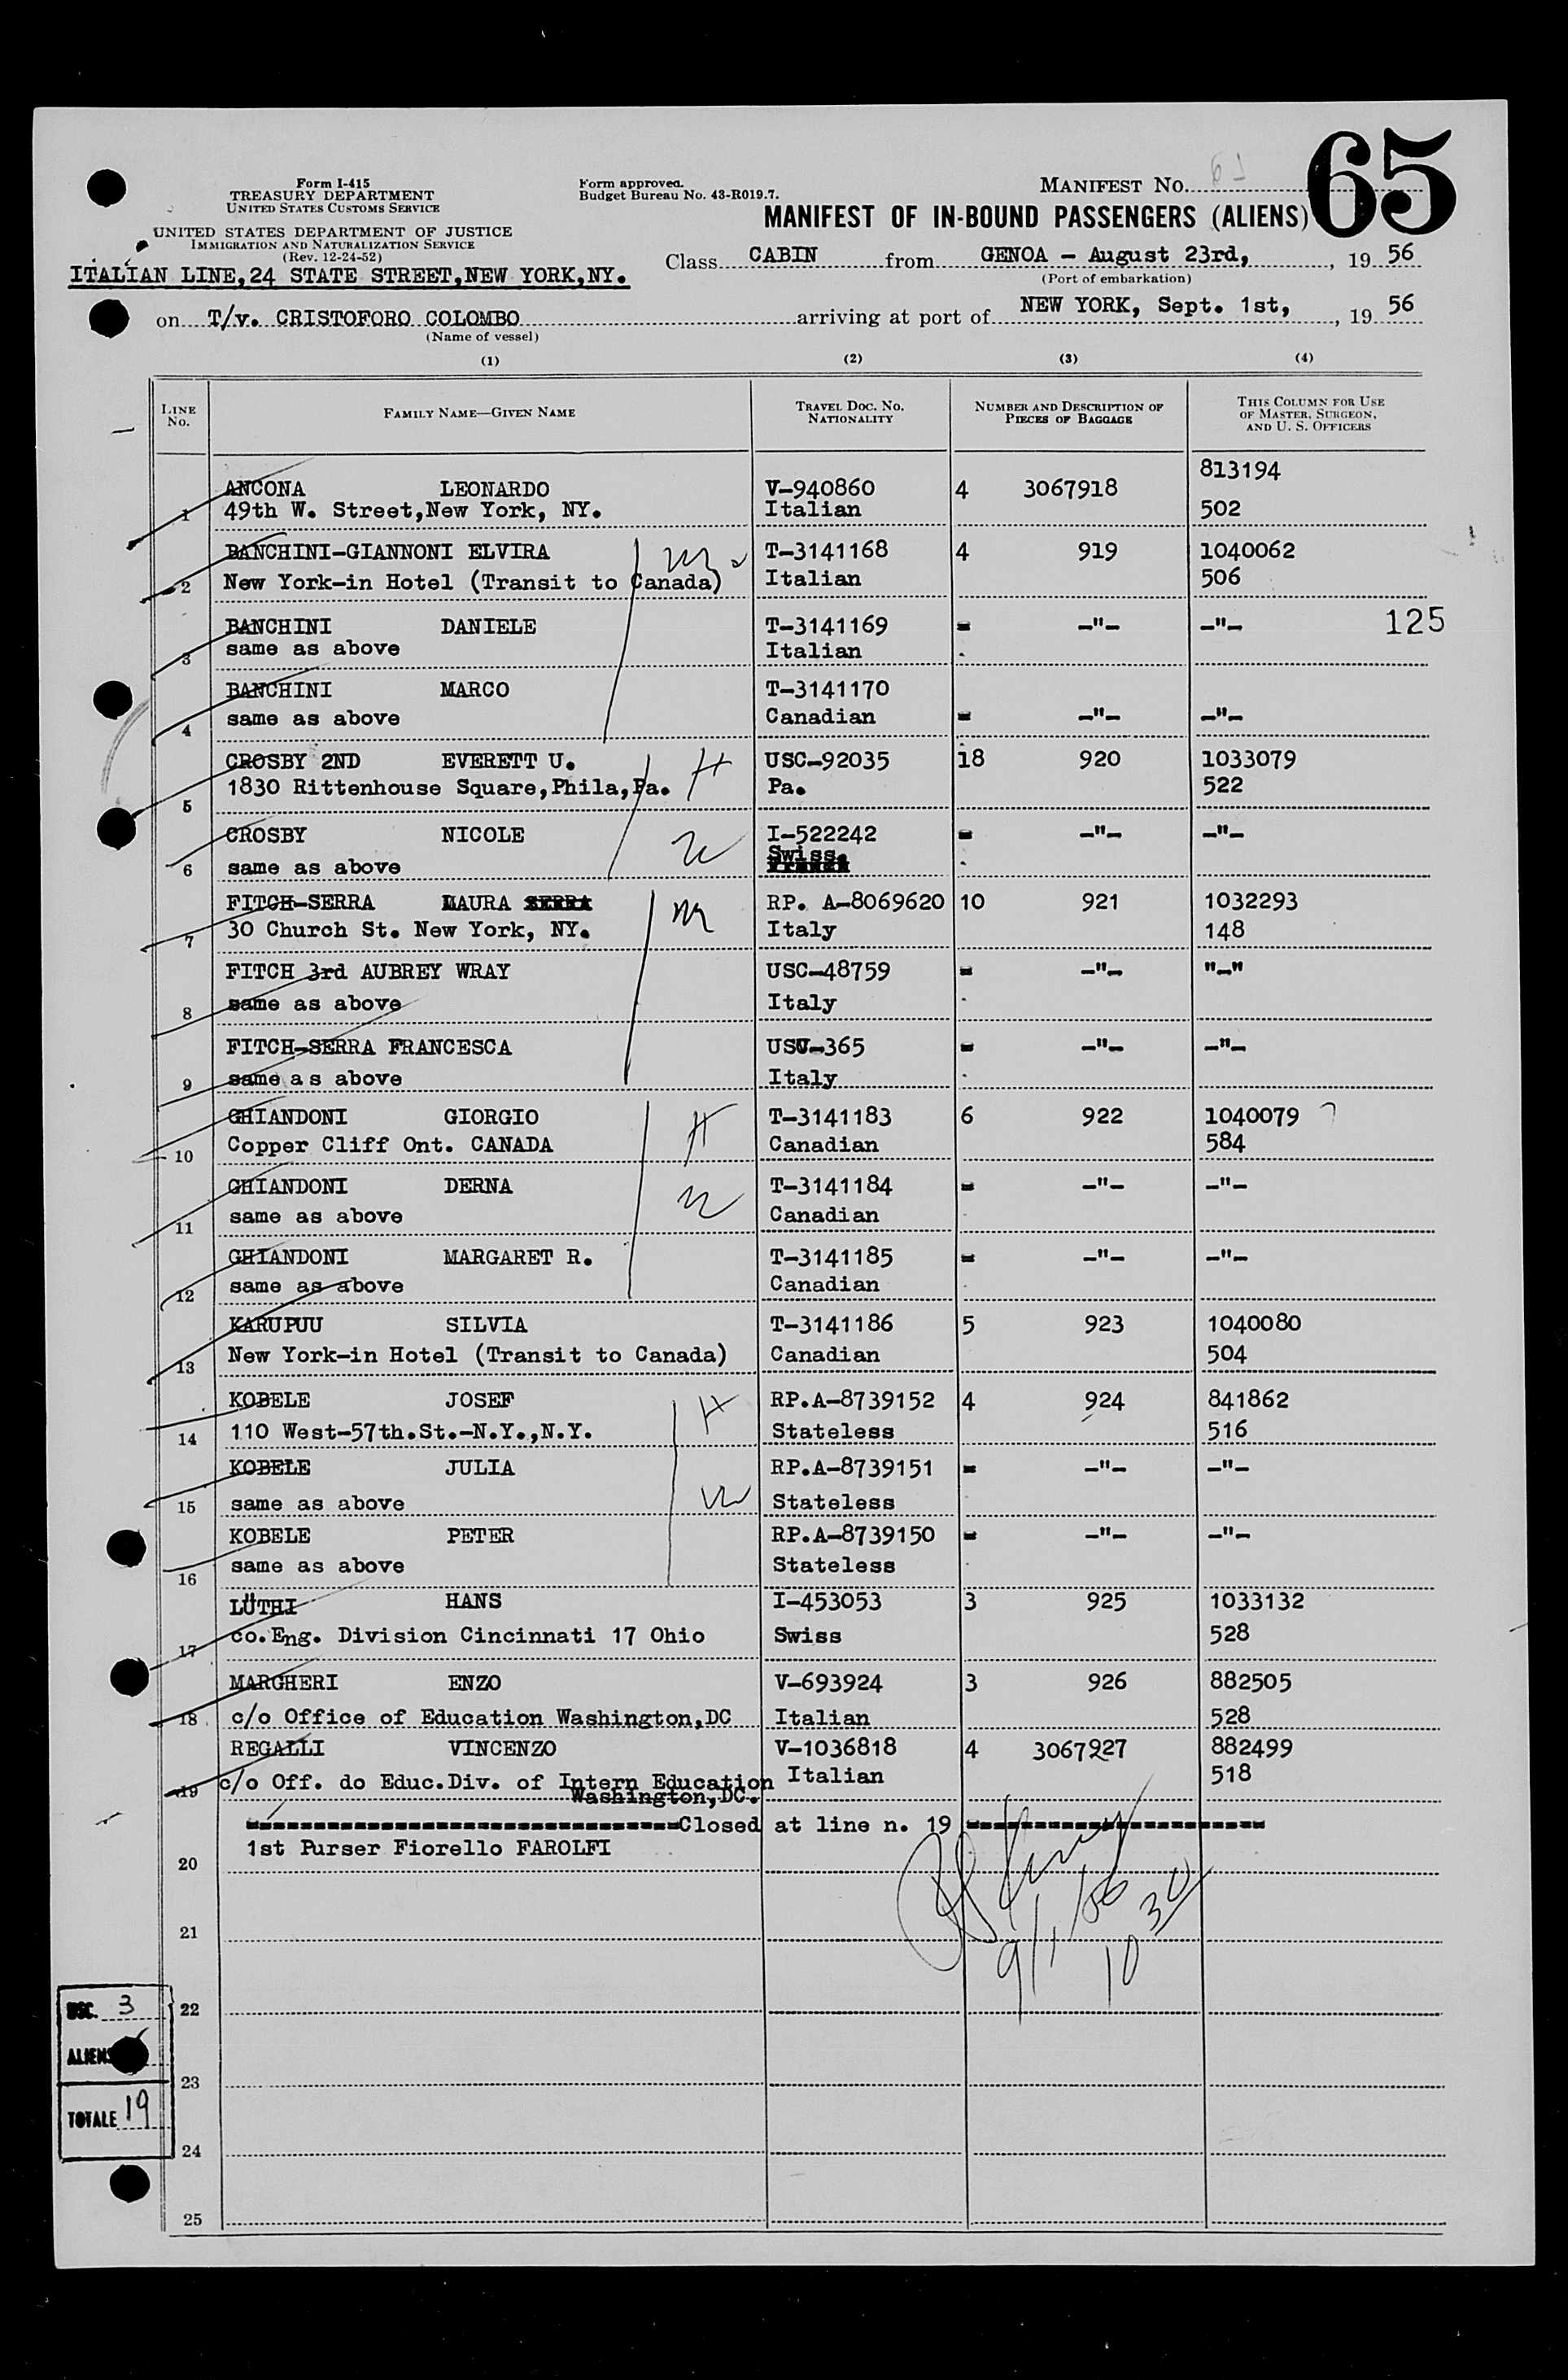 65
Form I-415
TREASURY DEPARTMENT
UNITED STATES CUSTOMS SERVICE
UNITED STATES DEPARTMENT OF JUSTICE
IMMIGRATION AND NATURALIZATION SERVICE
(Rev. 12-24-52)
Form approved.
Budget Bureau No. 43-R019.7.
MANIFEST NO.
MANIFEST OF IN-BOUND PASSENGERS (ALIENS)
ITALIAN LINE,24 STATE STREET,NEW YORK,NY.
Class CABIN from GENOA - August 23rd, , 19 56
(Port of embarkation)
on T/v. CRISTOFORO COLOMBO arriving at port of NEW YORK, Sept. 1st, , 19 56
(Name of vessel)
(1) (2) (3) (4)
LINE No. FAMILY NAME—GIVEN NAME TRAVEL DOC. NO. NATIONALITY NUMBER AND DESCRIPTION OF PIECES OF BAGGAGE THIS COLUMN FOR USE OF MASTER, SURGEON, AND U. S. OFFICERS
813194
ANCONA LEONARDO V-940860 4 3067918
1 49th W. Street,New York, NY. Italian 502
BANCHINI-GIANNONI ELVIRA T-3141168 4 919 1040062
2 New York-in Hotel (Transit to Canada) Italian 506
BANCHINI DANIELE T-3141169 = -"- -"- 125
3 same as above Italian
BANCHINI MARCO T-3141170
4 same as above Canadian = -"- -"-
CROSBY 2ND EVERETT U. H USC-92035 18 920 1033079
5 1830 Rittenhouse Square,Phila,Pa. Pa. 522
CROSBY NICOLE I-522242 = -"- -"-
6 same as above Swiss.
FITCH-SERRA MAURA SERRA RP. A-8069620 10 921 1032293
7 30 Church St. New York, NY. Italy 148
FITCH 3rd AUBREY WRAY USC-48759 = -"- "-"
8 same as above Italy
FITCH-SERRA FRANCESCA USV-365 = -"- -"-
9 same a s above Italy
GHIANDONI GIORGIO H T-3141183 6 922 1040079
10 Copper Cliff Ont. CANADA Canadian 584
GHIANDONI DERNA T-3141184 = -"- -"-
11 same as above Canadian
GHIANDONI MARGARET R. T-3141185 = -"- -"-
12 same as above Canadian
KARUPUU SILVIA T-3141186 5 923 1040080
13 New York-in Hotel (Transit to Canada) Canadian 504
KOBELE JOSEF H RP.A-8739152 4 924 841862
14 110 West-57th.St.-N.Y.,N.Y. Stateless 516
KOBELE JULIA RP.A-8739151 = -"- -"-
15 same as above W Stateless
KOBELE PETER RP.A-8739150 = -"- -"-
16 same as above Stateless
LÜTHI HANS I-453053 3 925 1033132
17 co.Eng. Division Cincinnati 17 Ohio Swiss 528
MARGHERI ENZO V-693924 3 926 882505
18 c/o Office of Education Washington,DC Italian 528
REGALLI VINCENZO V-1036818 4 3067927 882499
19 c/o Off. do Educ.Div. of Intern Education Italian 518
Washington,DC.
Closed at line n. 19
20 1st Purser Fiorello FAROLFI
9/1/56
10 30
21
22
23
24
25
USC. 3
ALIENS
TOTALE 19